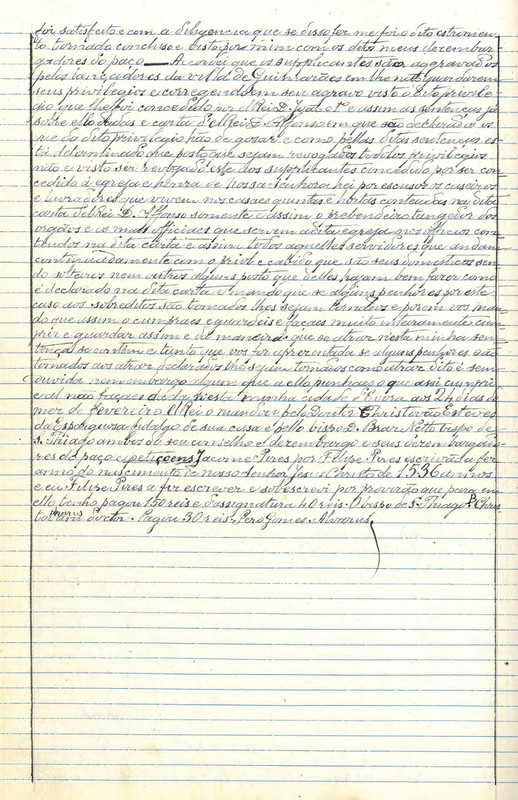 foi satisfeito e com a deligencia que se disso fez me foi o dito estromen
to tornado concluso e visto por mim com os ditos meus dezembar
gadores do paço — Acordei que os supplicantes são aggravados
pelos lançadores da villa de Guimarães em lhe não guardarem
seus privilegios e corregendo em seu agravo visto o dito privile
gio que lhe foi concedido por el Rei D. João 1º e assim as sentenças já
sobre ello dadas e carta d'el Rei D. Affonso em que são declarados os
que do dito privilegio hão de gosar e como pellas ditas sentenças es
tá determinado que posto que sejam revogados todolos privilegios
não é visto ser revogado este dos supplicantes concedido por ser con
cedido á egreja e honra de nossa senhora hei por escusos os caseiros
e lavradores que vivem nos casaes quintas e hortas contheudas na dita
carta del Rei D. Affonso somente e assim o prebendeiro tangedor dos
orgãos e os mais officiaes que servem a dita egreja nos officios con
theudos na dita carta e assim todos aquelles servidores que andam
continuadamente com o priol e cabido que são seus domesticos sen
do solteiros nem outros alguns posto que delles hajam bem fazer como
é declarado na dita carta e mando que se alguns penhores por este
caso aos sobreditos são tomados lhes sejam tornados e porem vos man
do que assim o cumpraes e guardeis e façaes muito inteiramente cum
prir e guardar assim e de maneira que se atraz nesta minha sen
tença se contém e tanto que vos for apresentada se alguns penhores são
tomados aos atraz declarados lhe sejam tornados como atraz dito é sem
duvida nem embargo algum que a ello punhaes o que assi cumpri
e al não façaes dada nesta minha cidade d'Evora aos 24 dias do
mez de Fevereiro El Rei o mandou pelo Doutor Christovão Esteves
da Esparguosa fidalgo de sua casa e pello bispo D. Braz Netto bispo de
S. Thiago ambos do seu conselho e dezembargo e seus dezembargado
res do paço e petições Jacome Pires por Filipe Pires escrivão a fez
anno do nascimento de nosso senhor Jesus Christo de 1536 annos
e eu Filipe Pires a fiz escrever e sobescrevi por provizão que para em
ello tenho pagou 150 reis e d'assignatura 40 reis. O bispo de S. Thiago. Chris
tophorus Doctor. Pagou 30 reis. Pero Gomes. Alvarus